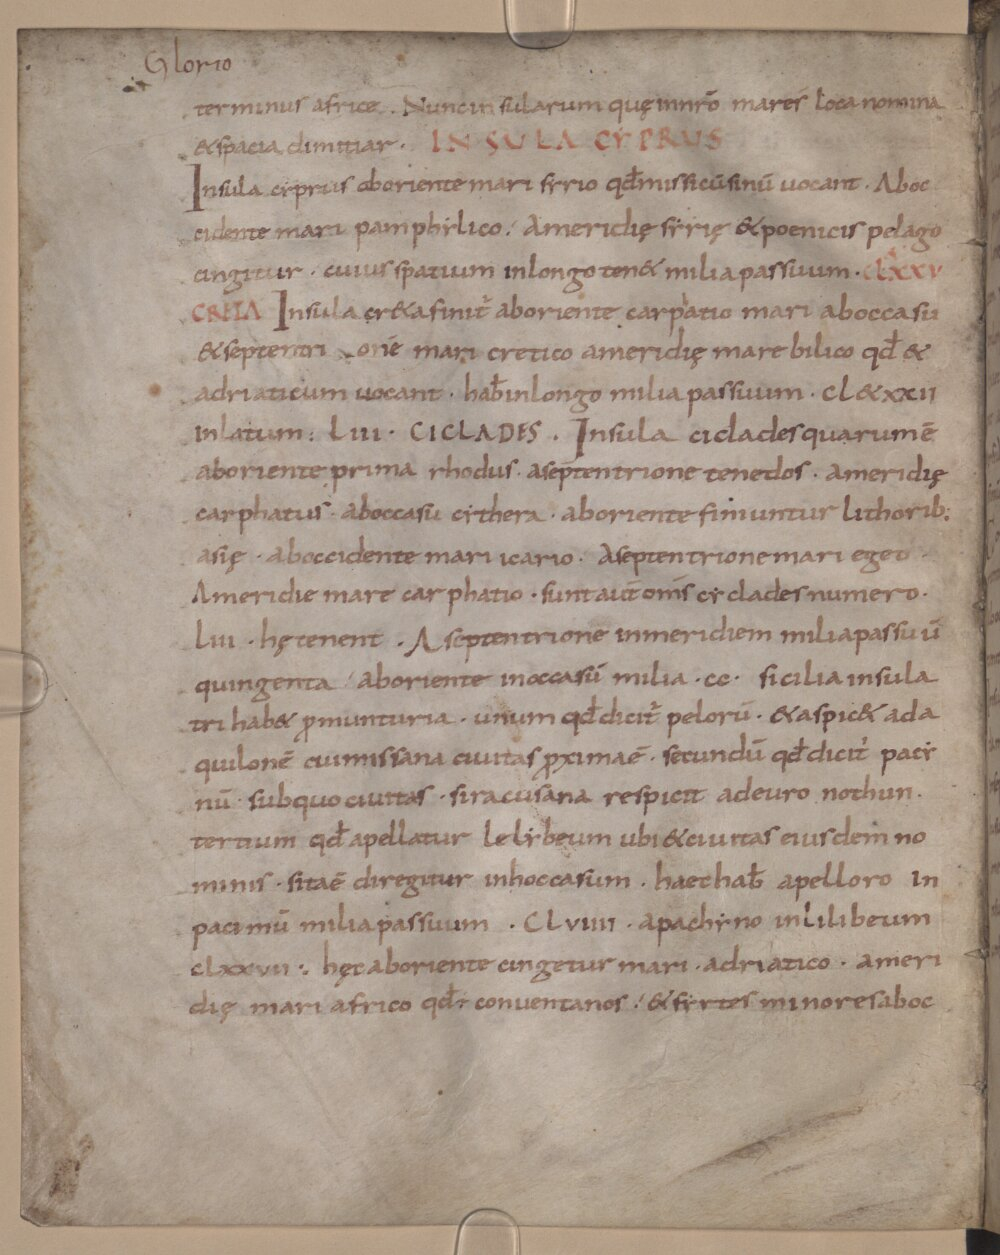 Glorio
terminus africe . Nunc insularum quę innr̄o mare s̄ Loca nomina
& spacia dimitiar . INSULA CYPRUS
Insula cẏprus aboriente mari sẏrio qđ missicū sinū uocant . Aboc
cidente mari pamphẏlico . Ameridię sẏrię & poenicis pelago
cingitur . cuius spatium inlongo ten& milia passuum . CLXXV
CRETA Insula cr&a finit᷑ aboriente carpatio mari aboccasu
& septentri onē mari cretico ameridię mare bilico qđ &
adriaticum uocant . hab̄ inlongo milia passuum . CL & xxii
inlatum : Liii . CICLADES . Insula ciclades quarum ē
aboriente prima rhodus . aseptentrione tenedos . ameridię
carphatus . aboccasu cẏthera . aboriente finiuntur lithorib;
asię . aboccidente mari icario . Aseptentrione mari egeo .
Ameridie mare carphatio . sunt aut̄ om̄s cẏclades numero .
Liii . hę tenent . A septentrione inmeridiem milia passuū
quingenta / aboriente inoccasū milia . cc . sicilia insula
tri hab& ꝓmunturia . unum qđ dicit᷑ pelorū . & aspic& ad a
quilonē cui missana ciuitas ꝓxima ē . secundū qđ dicit᷑ pacẏ
nū . subquo ciuitas . siracusana respicit ad euro nothun .
tertium qđ apellatur lelẏbeum ubi & ciuitas eiusdem no
minis . sita ē diregitur inhoccasum . haec hab̄ apelloro in
pacimū milia passuum . CLviiii . apachẏno inlilibeum
cLxxvii : hęc aboriente cingetur mari . adriatico . ameri
dię mari africo qđ conuentanos . & sẏrtes minores aboc